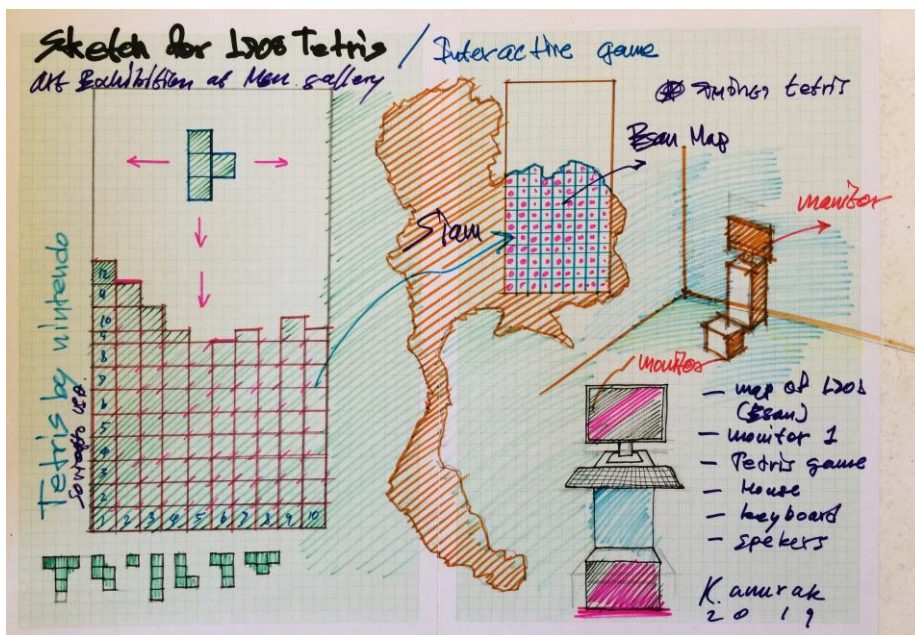 Sketch for LAOS Tetris / Interactive game
Art Exhibition at gallery
tetris
Esan Map
Siam
monitor
Tetris by nintendo
12
11
10
9
8
7
6
5
4
3
2
1 2 3 4 5 6 7 8 9 10
monitor
— map of LAOS
(Esan)
— monitor 1
— Tetris game
— House
— keyboard
— spekers
K. anurak
2 0 1 9